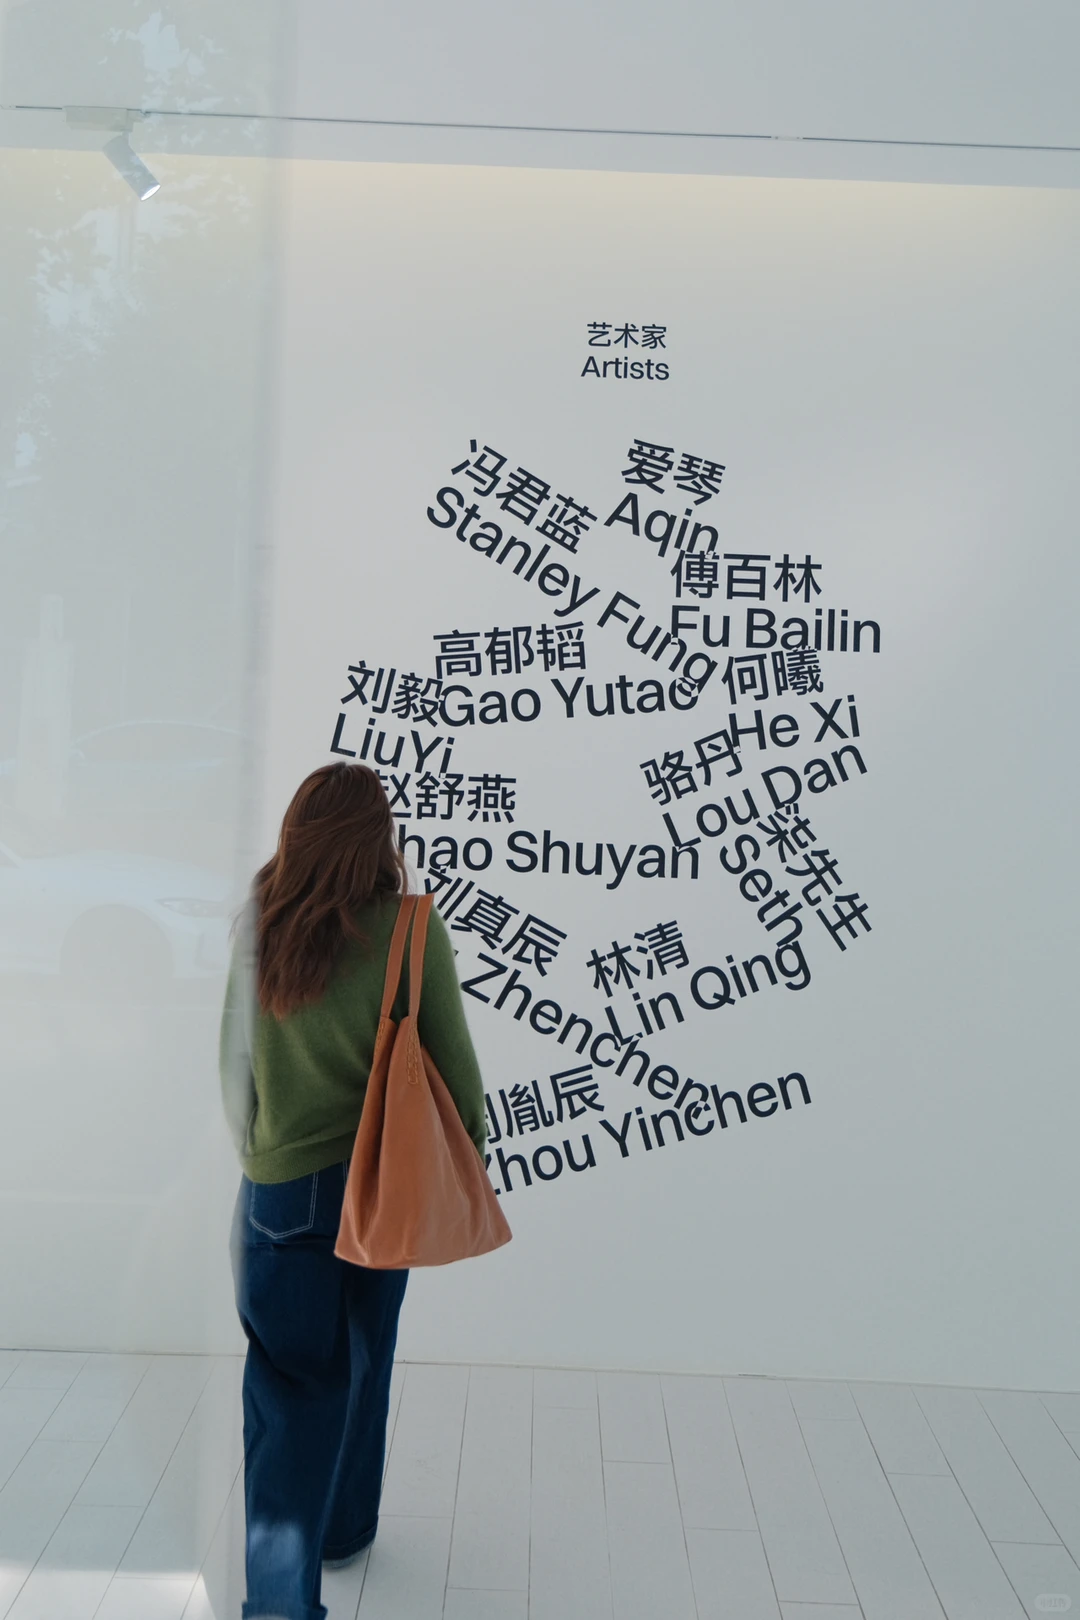 艺术家
Artists
爱琴
Aqin
冯君蓝
Stanley Fung
傅百林
Fu Bailin
高郁韬
Gao Yutao
何曦
He Xi
刘毅
LiuYi
骆丹
Lou Dan
赵舒燕
hao Shuyan
柒先生
Seth
刘真辰
Zhenchen
林清
Lin Qing
胤辰
Zhou Yinchen